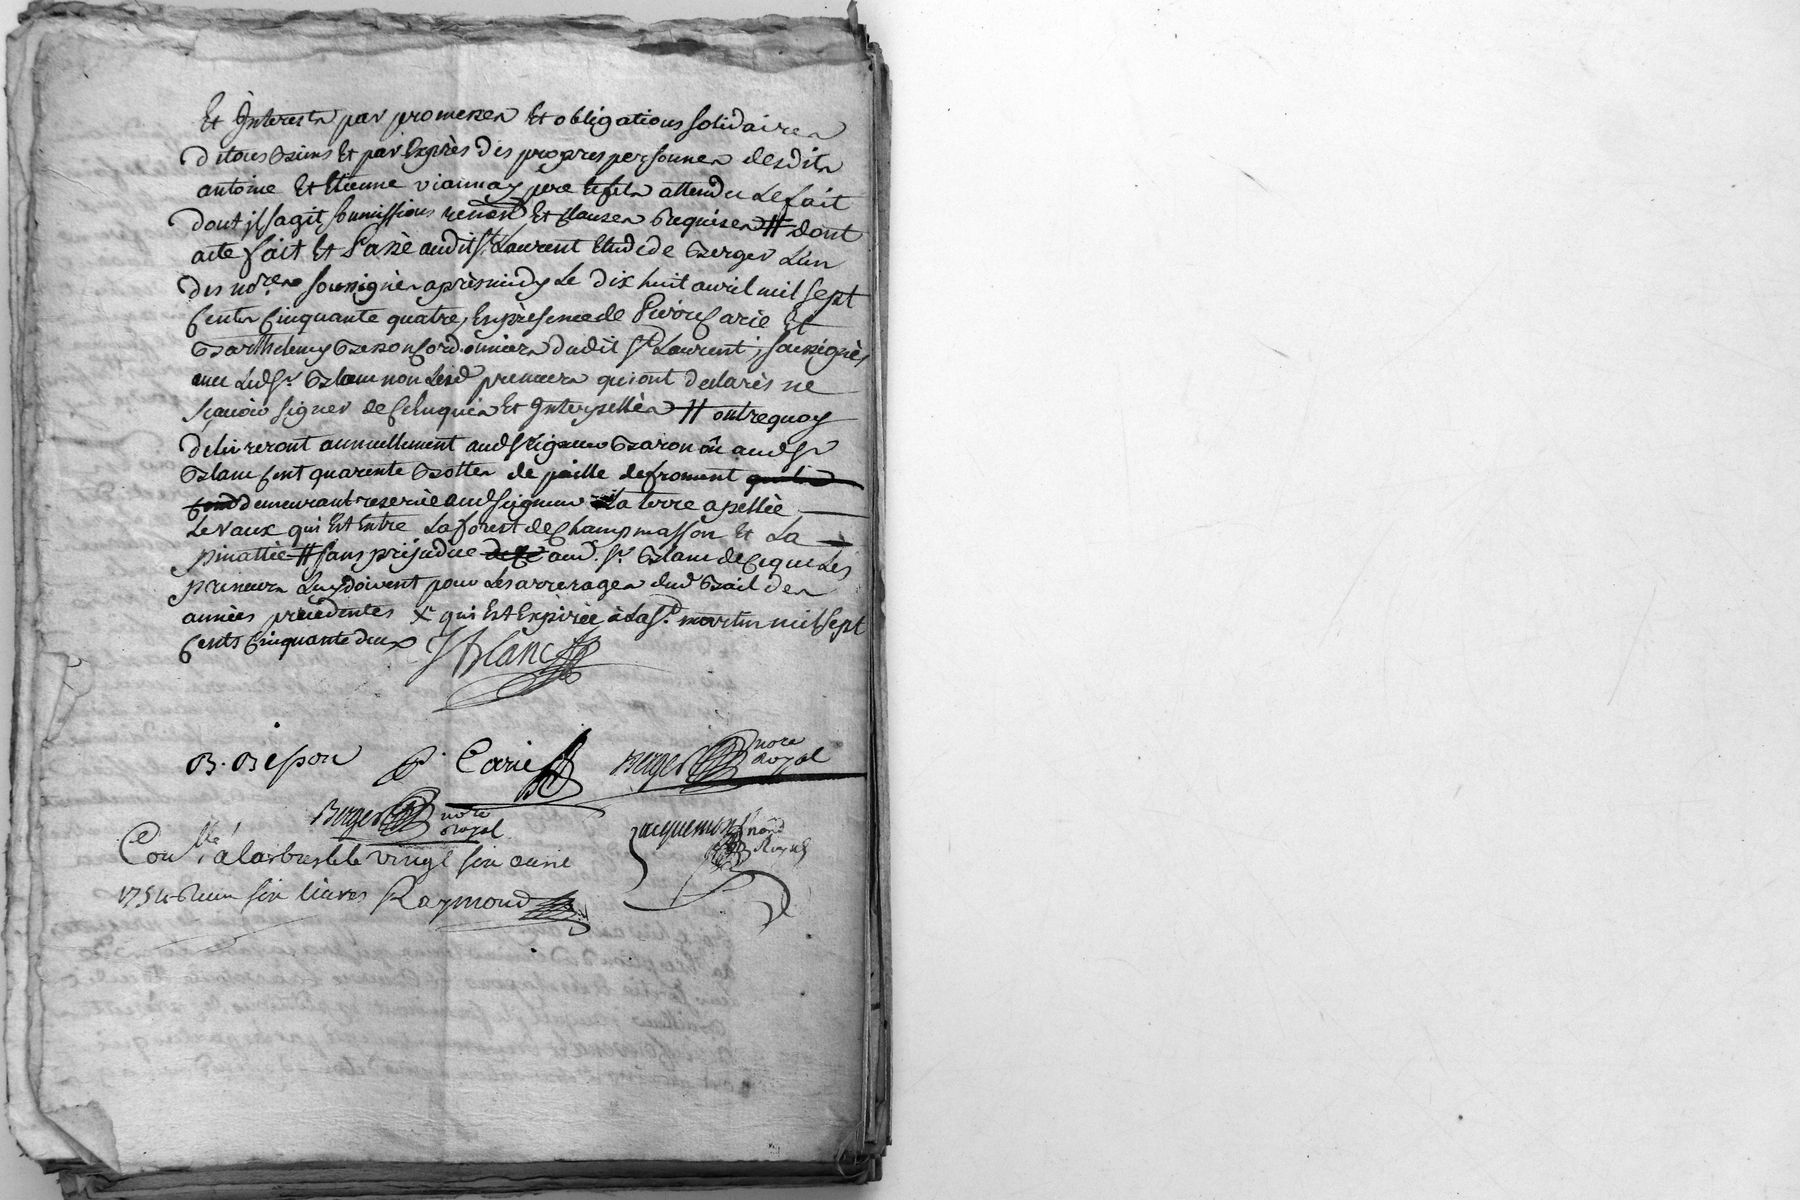 Et Interests par promesses Et obligations solidaires
de tous biens Et par Exprès des propres personnes desdits
antoine Et Etienne viannay père Et fils attendu Le fait
dont jl sagit soumissions renon Et Clauses requises # dont
acte fait Et Passé audit St Laurent Etude de Berger L'un
des nores soussignés aprèsmidy Le dix huit avril mil sept
Cents Cinquante quatre, En présence de Pierre Carie Et
Barthelemy Besson Cordonniers dudit St Laurent, soussignés
avec Led Sr Blanc non Lesd preneurs qui ont declarés ne
sçavoir signer de Ce Enquis Et Interpellés # outre quoy
delivreront annuellement aud seigneur Baron ou aud Sr
Blanc Cent quarente Bottes de paille de froment
demeurant reservée aud seigneur La terre apellée
Le Vaux qui Est Entre La forest de Champmasson Et La
pinattie # sans préjudice aud. Sr Blanc de Ce que Les
preneurs Luy doivent pour Les arrerages dud Bail des
années précédentes & qui Est Expirée à La St martin mil sept
Cents Cinquante deux JBlanc
B. Besson P. Carie Berger nore Royal
Berger nore Royal
Jacquemont nore Royal
Conllé à Larbresle le vingt six avril
1754 Reçu six livres Raymond